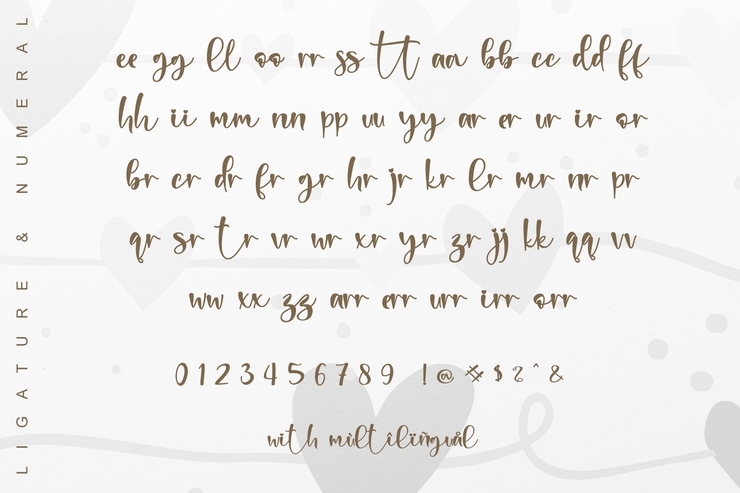 LIGATURE & NUMERAL
ee gg ll oo rr ss tt aa bb cc dd ff
hh ii mm nn pp uu yy ar er ur ir or
br cr dr fr gr hr jr kr lr mr nr pr
qr sr tr vr wr xr yr zr jj kk qq vv
ww xx zz arr err urr irr orr
0 1 2 3 4 5 6 7 8 9 ! @ # $ % ^ &
with mùltîlïñgùâl